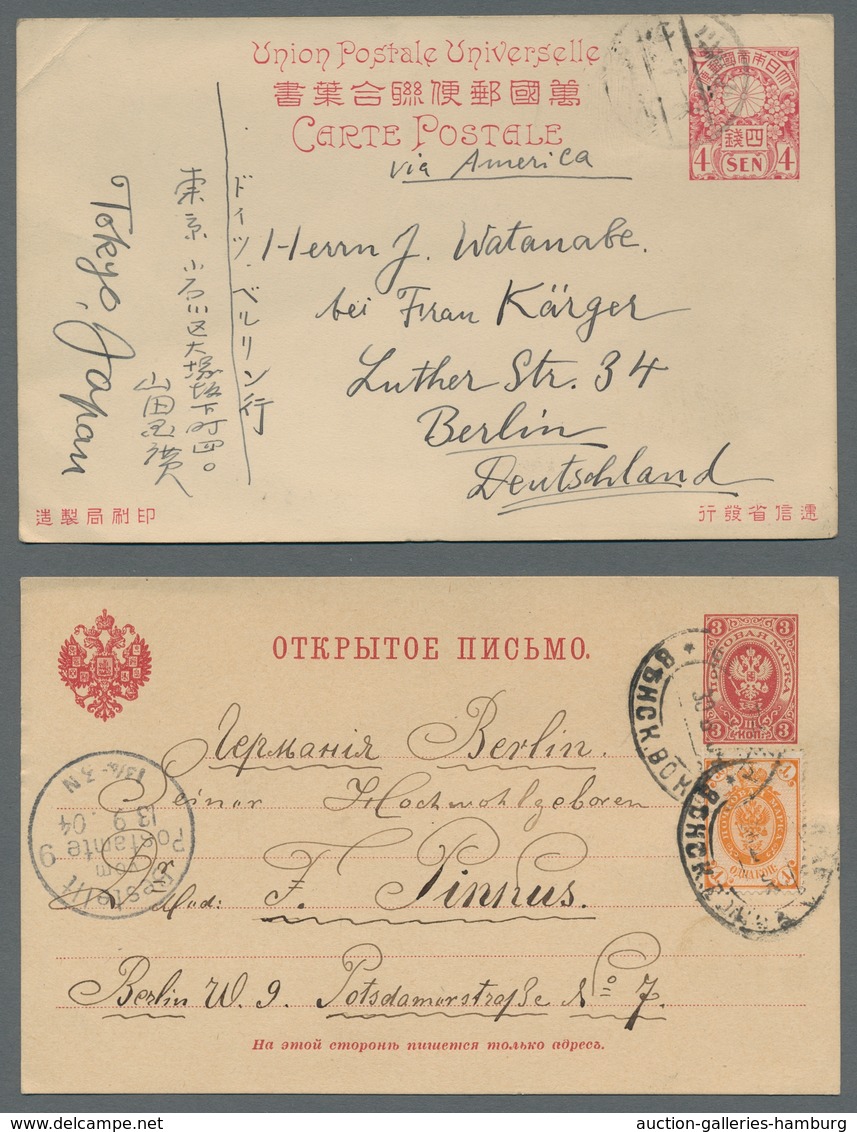 Union Postale Universelle
書葉合聯便郵國萬
CARTE POSTALE
大日本帝國郵便
四錢
4 SEN 4
via America
ドイツ.ベルリン行
東京 小石川区大塚坂下町四〇
山田
Tokyo, Japan
Herrn J. Watanabe.
bei Frau Kärger
Luther Str. 34
Berlin
Deutschland
造製局刷印
行發省信遞
ОТКРЫТОЕ ПИСЬМО.
3 ПОЧТОВАЯ МАРКА 3
3 КОП. 3
ОДНА КОП.
ВѢНСК. ВОК
ВѢНСК.
Германія Berlin.
Seiner Hochwohlgeboren
F. Pinkus.
Berlin W. 9. Potsdamerstraße No 7.
Bestellt
vom
Postamte 9
13 9 . 04
- 3 N
На этой сторонѣ пишется только адресъ.
auction-galleries-hamburg